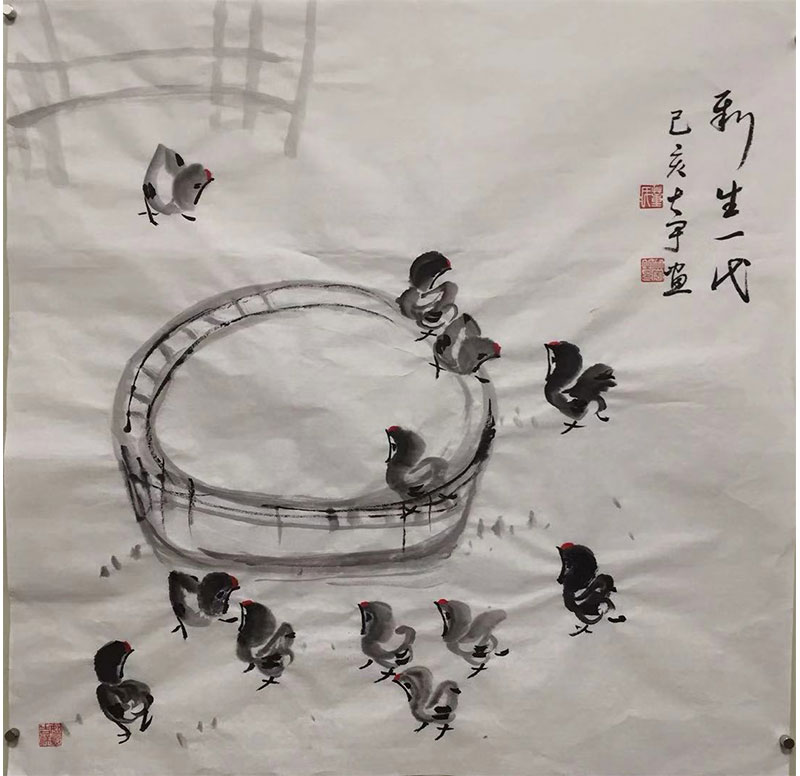 新生一代
己亥大宇画